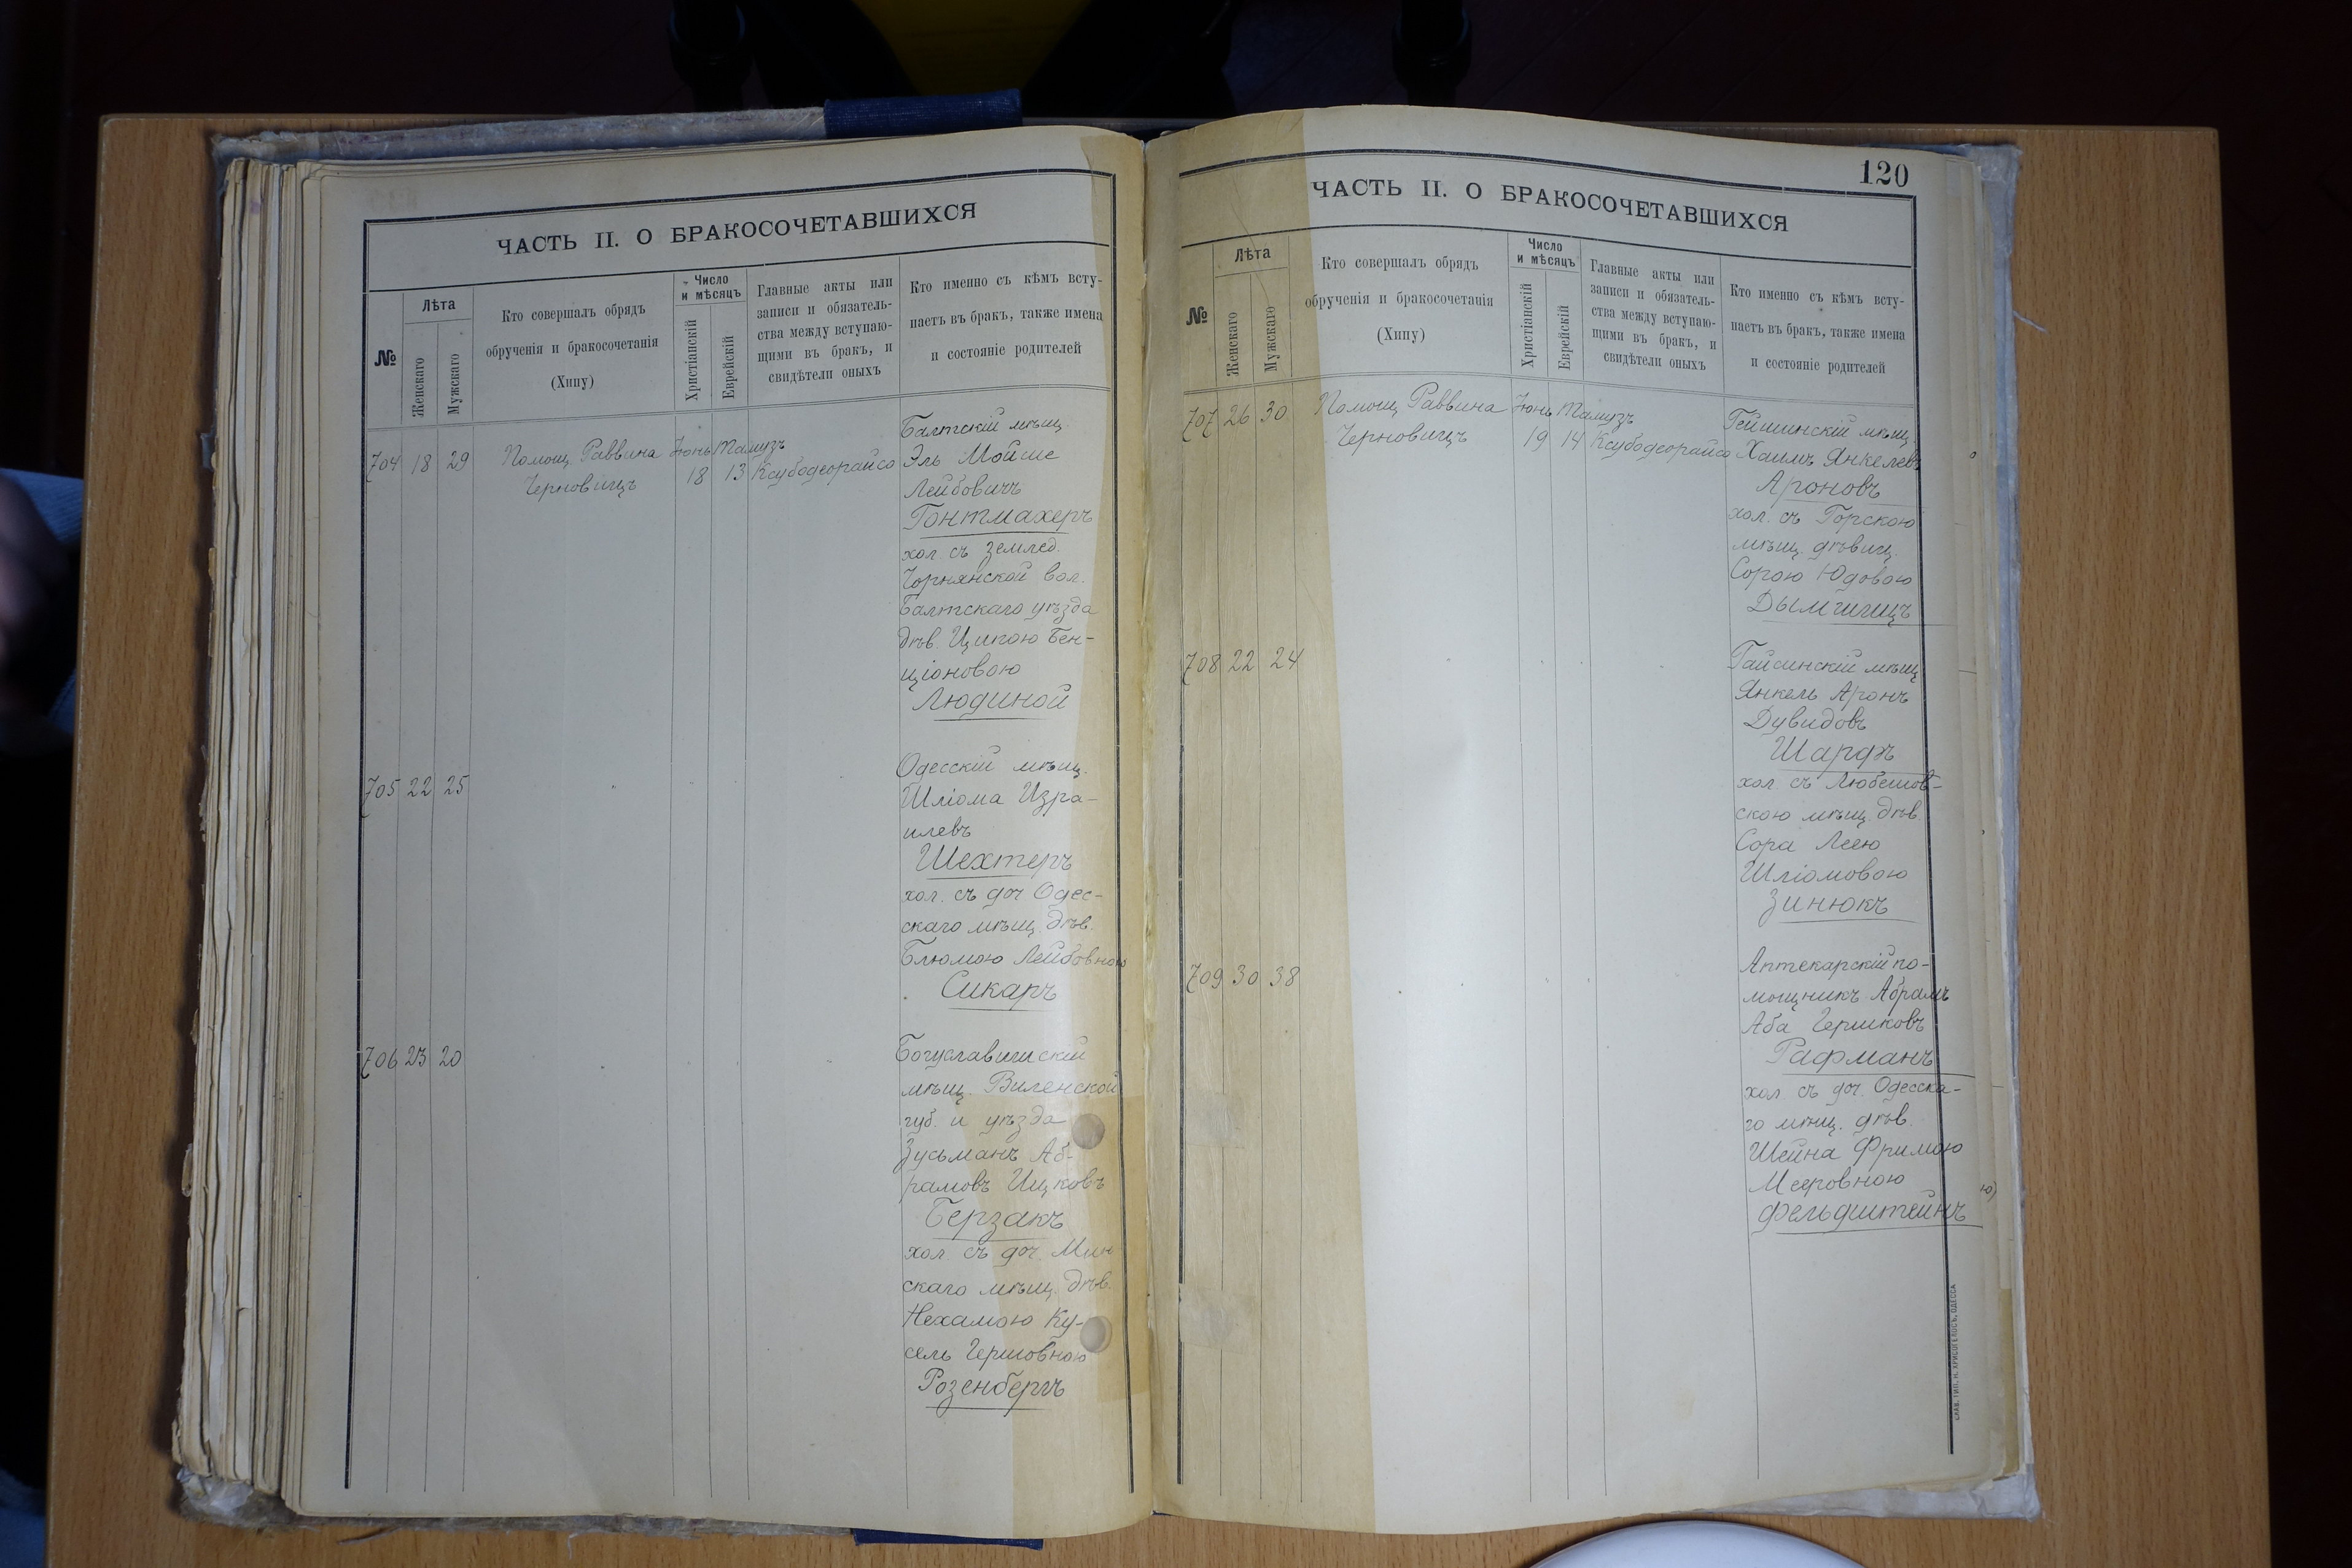 ЧАСТЬ II. О БРАКОСОЧЕТАВШИХСЯ
№
Лѣта
Женскаго
Мужскаго
Кто совершалъ обрядъ
обрученія и бракосочетанія
(Хипу)
Число
и мѣсяцъ
Христіанскій
Еврейскій
Главные акты или
записи и обязатель-
ства между вступаю-
щими въ бракъ, и
свидѣтели оныхъ
Кто именно съ кѣмъ всту-
паетъ въ бракъ, также имена
и состояніе родителей
704 18 29
Помощ Раввина
Черновицъ
Іюнь
18
Тамузъ
13
Ксубодеорайсо
Балтскій мѣщ.
Эль Мойше
Лейбовичъ
Гонтмахеръ
хол. съ землед.
Чорнянской вол.
Балтскаго уѣзда
дѣв. Ципою Бен-
ціоновою
Людиной
705 22 25
Одесскій мѣщ.
Шліома Изра-
илевъ
Шехтеръ
хол. съ доч Одес-
скаго мѣщ. дѣв.
Блюмою Лейбовною
Сикаръ
706 23 20
Богуславишскій
мѣщ. Виленской
губ. и уѣзда
Зусьманъ Аб-
рамовъ Ицковъ
Берзакъ
хол. съ доч. Мин
скаго мѣщ. дѣв.
Нехамою Ку-
сель Гершовною
Розенбергъ
120
ЧАСТЬ II. О БРАКОСОЧЕТАВШИХСЯ
№
Лѣта
Женскаго
Мужскаго
Кто совершалъ обрядъ
обрученія и бракосочетанія
(Хипу)
Число
и мѣсяцъ
Христіанскій
Еврейскій
Главные акты или
записи и обязатель-
ства между вступаю-
щими въ бракъ, и
свидѣтели оныхъ
Кто именно съ кѣмъ всту-
паетъ въ бракъ, также имена
и состояніе родителей
707 26 30
Помощ Раввина
Черновицъ
Іюнь
19
Тамузъ
14
Ксубодеорайсо
Гейшинскій мѣщ.
Хаимъ Янкелевъ
Ароновъ
хол. съ Горскою
мѣщ. дѣвиц.
Сорою Юдовою
Дымшицъ
708 22 24
Гайсинскій мѣщ
Янкель Аронъ
Дувидовъ
Шарфъ
хол. съ Любешов-
скою мѣщ. дѣв.
Сора Леею
Шліомовою
Зинюкъ
709 30 38
Аптекарскій по-
мощникъ Абрамъ
Аба Гершковъ
Рафманъ
хол. съ доч. Одесска-
го мѣщ. дѣв.
Шейна Фримою
Мееровною
Фельдштейнъ
СЛАВ. ТИП. Н. ХРИСОГЕЛОСЪ, ОДЕССА